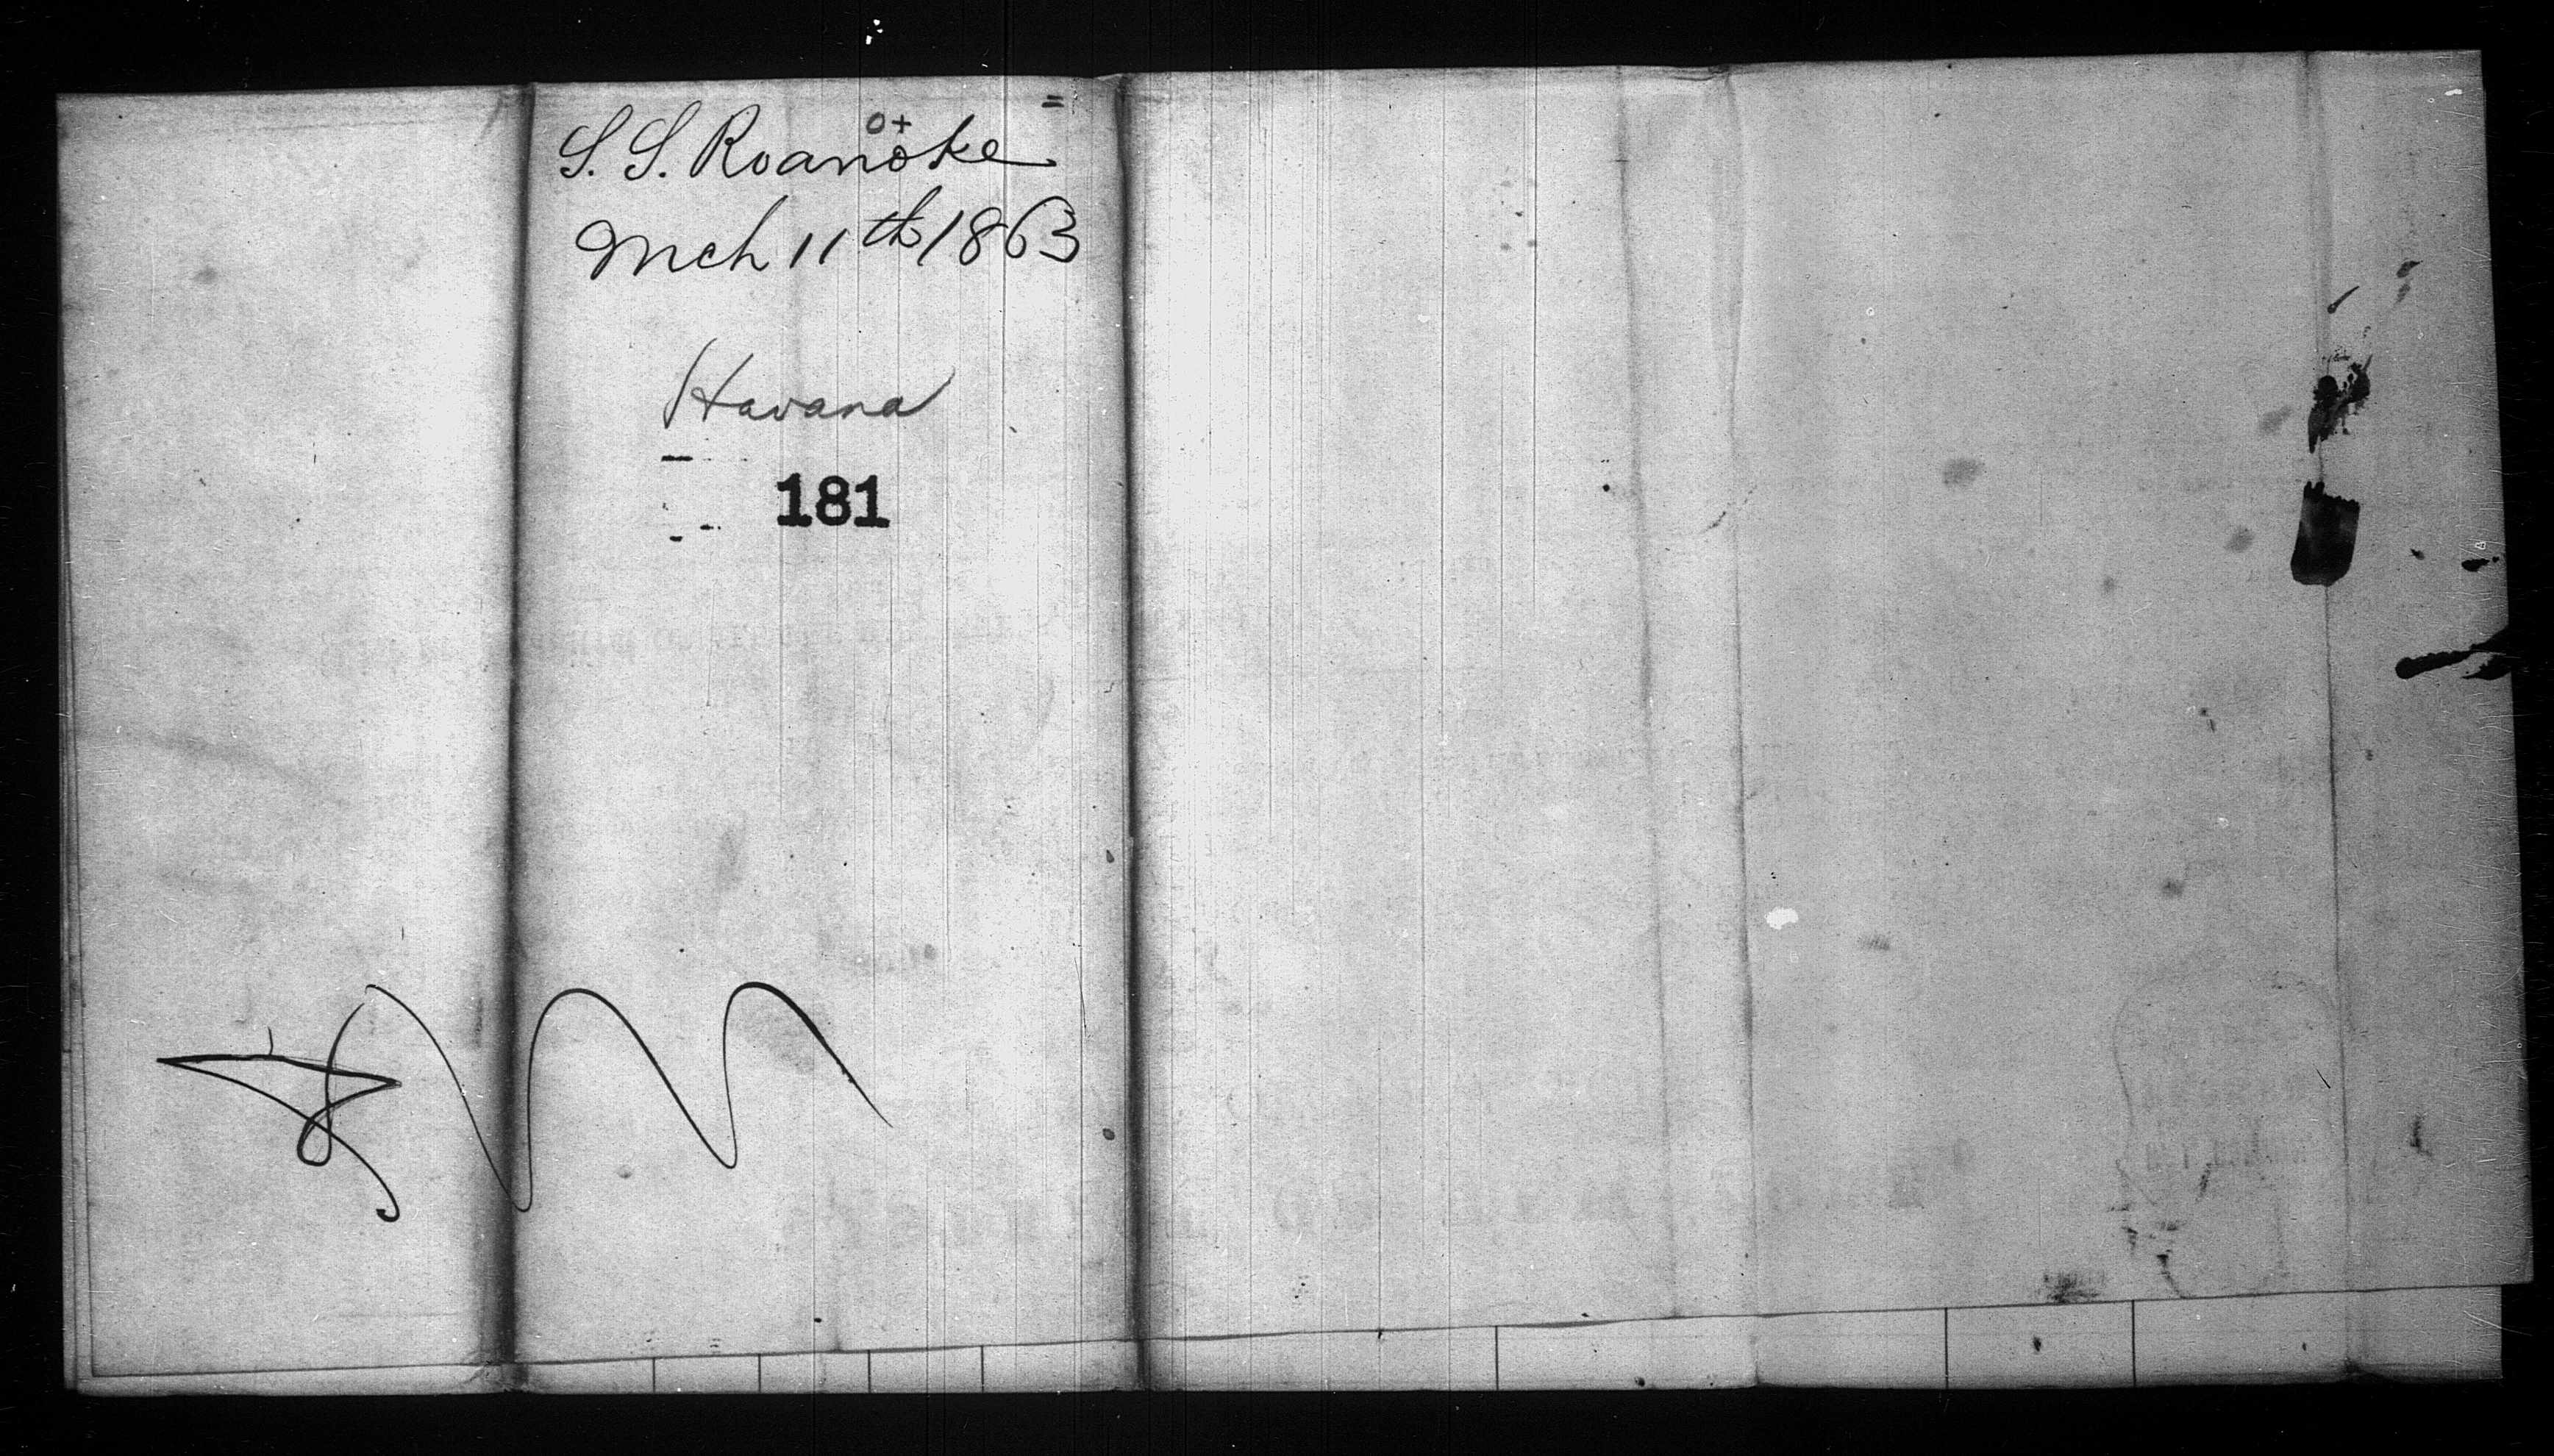 S. S. Roanoke
Mch 11th 1863
Havana
181